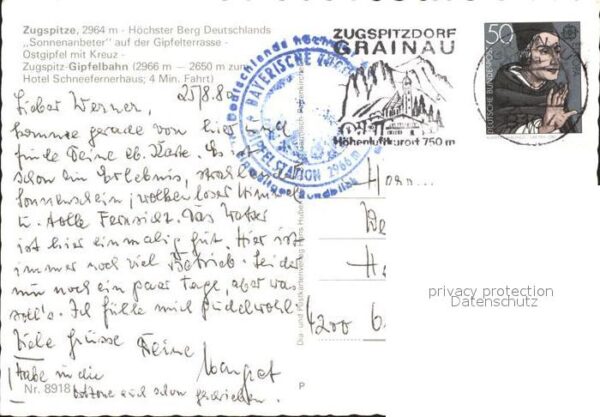 Zugspitze, 2964 m - Höchster Berg Deutschlands
„Sonnenanbeter" auf der Gipfelterrasse -
Ostgipfel mit Kreuz -
Zugspitz-Gipfelbahn (2966 m — 2650 m zum
Hotel Schneefernerhaus; 4 Min. Fahrt)
25/8.80
Lieber Werner,
komme gerade von hier und
finde Deine lb. Karte. Es ist
schon ein Erlebnis, strahlender
Sonnenschein, wolkenloser Himmel
u. tolle Fernsicht. Das Wetter
ist hier einmalig gut. Hier ist
immer noch viel Betrieb. Leider
nur noch ein paar Tage, aber was
soll's. Ich fühle mich pudelwohl.
Viele Grüsse Deine
Margret
Habe in die
auch schon geschrieben.
Nr. 8918
BAYERISCHE
GIPFELSTATION 2966 m
ZUGSPITZDORF
GRAINAU
Höhenluftkurort 750 m
50
DEUTSCHE BUNDESPOST
Herrn
We
He
4200
P
privacy protection
Datenschutz